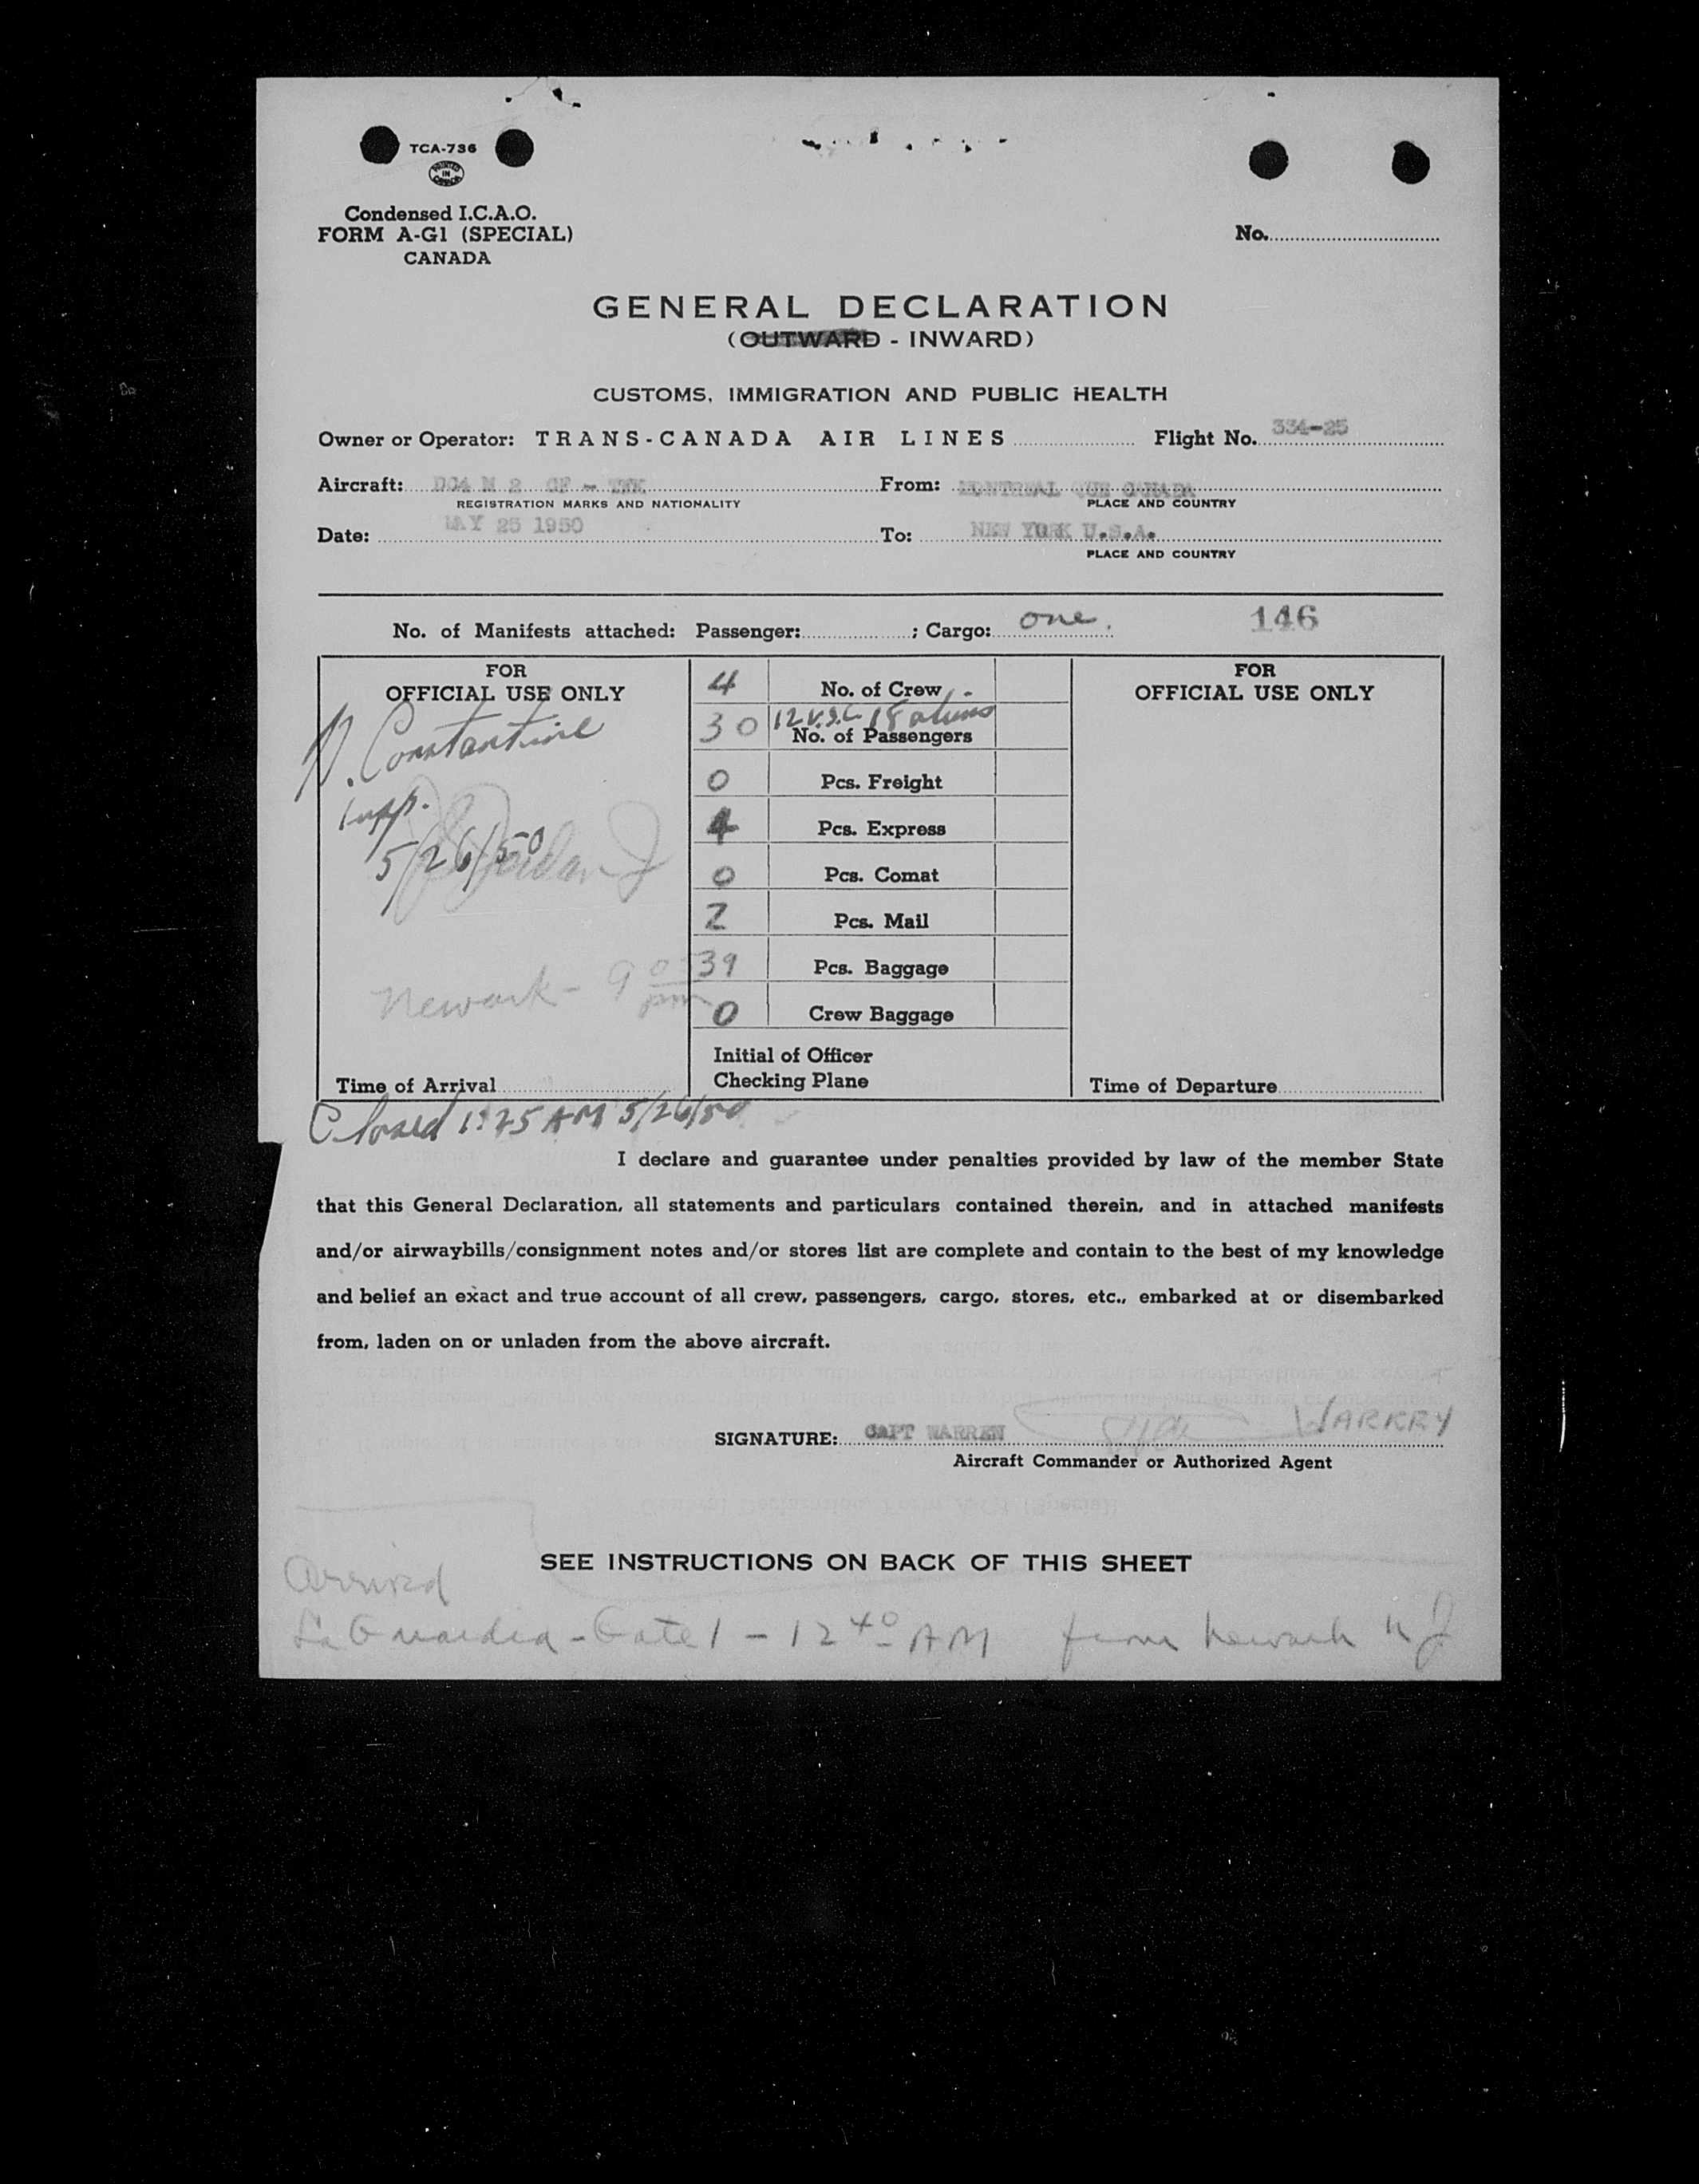 TCA-736
PRINTED IN CANADA
Condensed I.C.A.O.
FORM A-G1 (SPECIAL)
CANADA
No.
GENERAL DECLARATION
(OUTWARD - INWARD)
CUSTOMS, IMMIGRATION AND PUBLIC HEALTH
Owner or Operator: TRANS-CANADA AIR LINES Flight No. 334-25
Aircraft: DC4 M 2 CF - From: MONTREAL QUE CANADA
REGISTRATION MARKS AND NATIONALITY PLACE AND COUNTRY
Date: MAY 25 1950 To: NEW YORK U.S.A.
PLACE AND COUNTRY
No. of Manifests attached: Passenger: ; Cargo: one. 146
FOR
OFFICIAL USE ONLY
N. Constantine
Insp.
5/26/50
Newark - 9 05 pm
Time of Arrival
4 No. of Crew
30 12 U.S.C. 18 aliens
No. of Passengers
0 Pcs. Freight
4 Pcs. Express
0 Pcs. Comat
2 Pcs. Mail
39 Pcs. Baggage
0 Crew Baggage
Initial of Officer
Checking Plane
FOR
OFFICIAL USE ONLY
Time of Departure
Closed 1:25 AM 5/26/50
I declare and guarantee under penalties provided by law of the member State
that this General Declaration, all statements and particulars contained therein, and in attached manifests
and/or airwaybills/consignment notes and/or stores list are complete and contain to the best of my knowledge
and belief an exact and true account of all crew, passengers, cargo, stores, etc., embarked at or disembarked
from, laden on or unladen from the above aircraft.
SIGNATURE: CAPT WARREN
Aircraft Commander or Authorized Agent
SEE INSTRUCTIONS ON BACK OF THIS SHEET
Arrived
La Guardia - Gate 1 - 12 40 AM from Newark N J